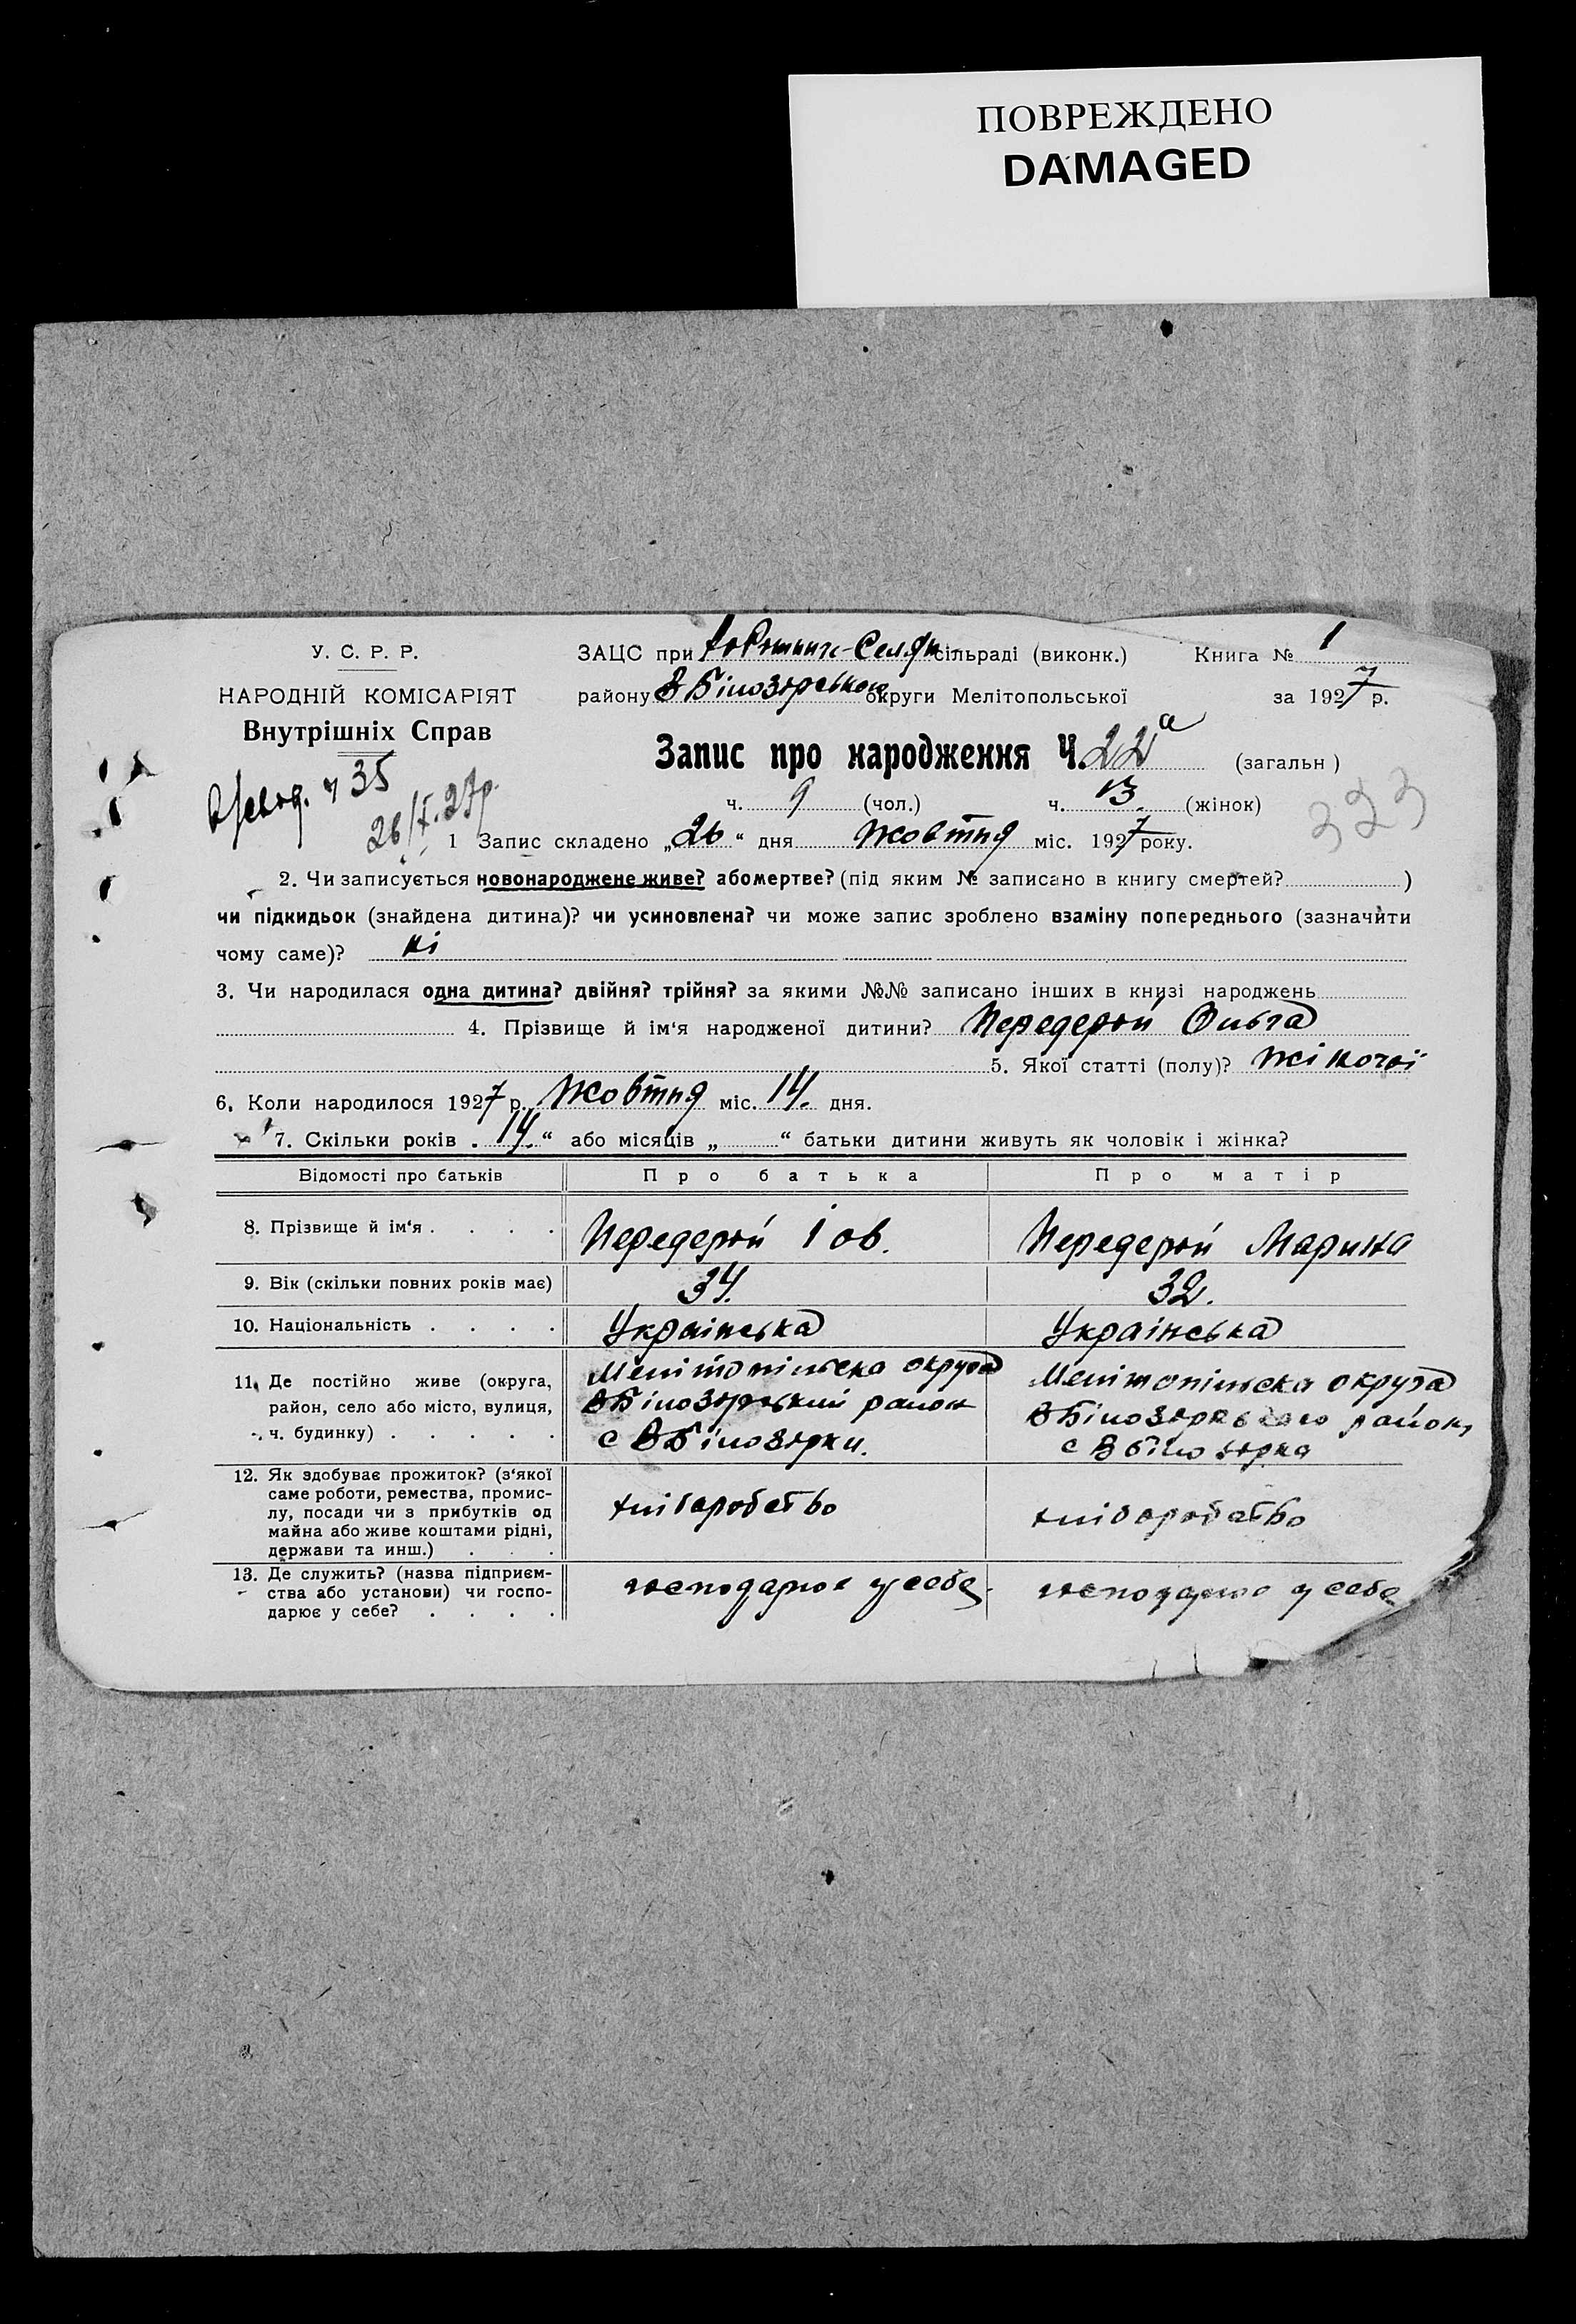 ПОВРЕЖДЕНО
DAMAGED
У. С. Р. Р.
НАРОДНІЙ КОМІСАРІЯТ
Внутрішніх Справ
ч 35
26/X.27р.
ЗАЦС при сільраді (виконк.)
району В Білозорською округи Мелітопольської
Книга № 1
за 1927 р.
Запис про народження Ч. 22а (загальн )
ч. 9 (чол.) ч. 13. (жінок)
323
1 Запис складено „26“ дня жовтня міс. 1927 року.
2. Чи записується новонароджене живе? або мертве? (під яким № записано в книгу смертей? )
чи підкидьок (знайдена дитина)? чи усиновлена? чи може запис зроблено взаміну попереднього (зазначити
чому саме)? ні
3. Чи народилася одна дитина? двійня? трійня? за якими №№ записано інших в книзі народжень
4. Прізвище й ім‘я народженої дитини? Передерій Ольга
5. Якої статті (полу)? жіночої
6. Коли народилося 1927 р. Жовтня міс. 14. дня.
7. Скільки років . 14. “ або місяців „ “ батьки дитини живуть як чоловік і жінка?
Відомості про батьків Про батька Про матір
8. Прізвище й ім‘я . . . . Передерій Іов. Передерій Марина
9. Вік (скільки повних років має) 34. 32.
10. Національність . . . . Українська Українська
11. Де постійно живе (округа,
район, село або місто, вулиця,
ч. будинку) . . . . .
Мелітопільска округа
ВБілозорський район
с ВБілозорки.
Мелітопільска округа
ВБілозорського район,
с Вбілозорка
12. Як здобуває прожиток? (з‘якої
саме роботи, ремества, промис-
лу, посади чи з прибутків од
майна або живе коштами рідні,
держави та инш.) . . .
хліборобство
хліборобство
13. Де служить? (назва підприєм-
ства або установи) чи госпо-
дарює у себе? . . . .
господарює у себе
господарює у себе